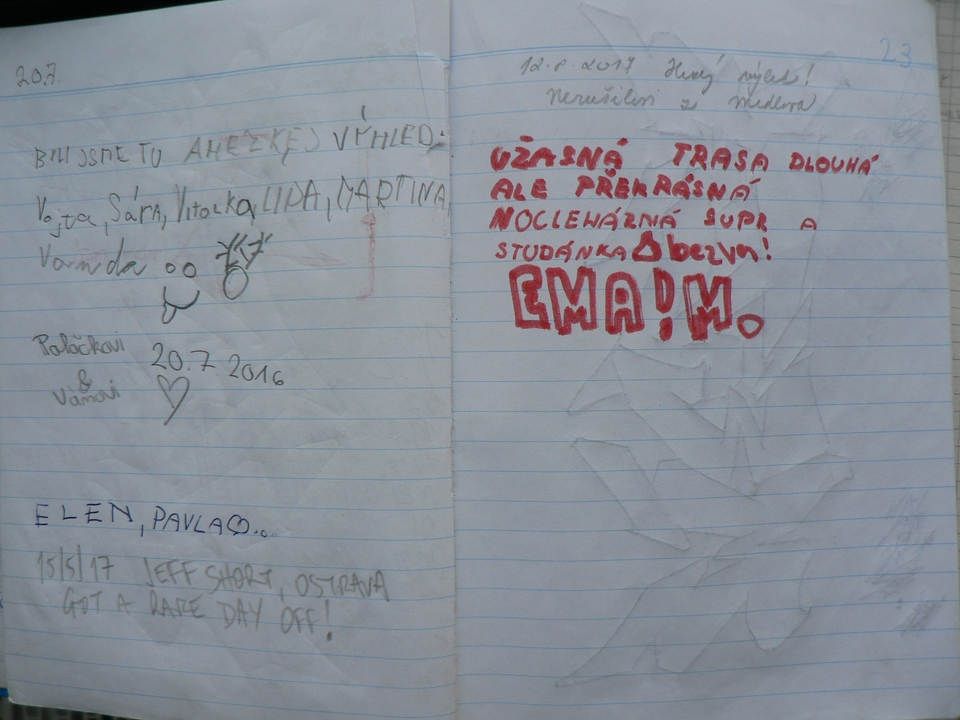 20.7.
BYLI JSME TU A HEZKEJ VÝHLED:
Vojta, SÁRA, Vítozka, LIDA, MARTINA,
Vanda
Poláčkovi 20.7.2016
&
Vámovi
ELEN, PAVLA...
15/5/17 JEFF SHORT, OSTRAVA
GOT A RARE DAY OFF!
23
12.8.2017 Hezký výlet!
Nerušilovi a
ÚŽASNÁ TRASA DLOUHÁ
ALE PŘEKRÁSNÁ
NOCLEHÁRNÁ SUPR A
STUDÁNKA bezvn!
EMA!M.